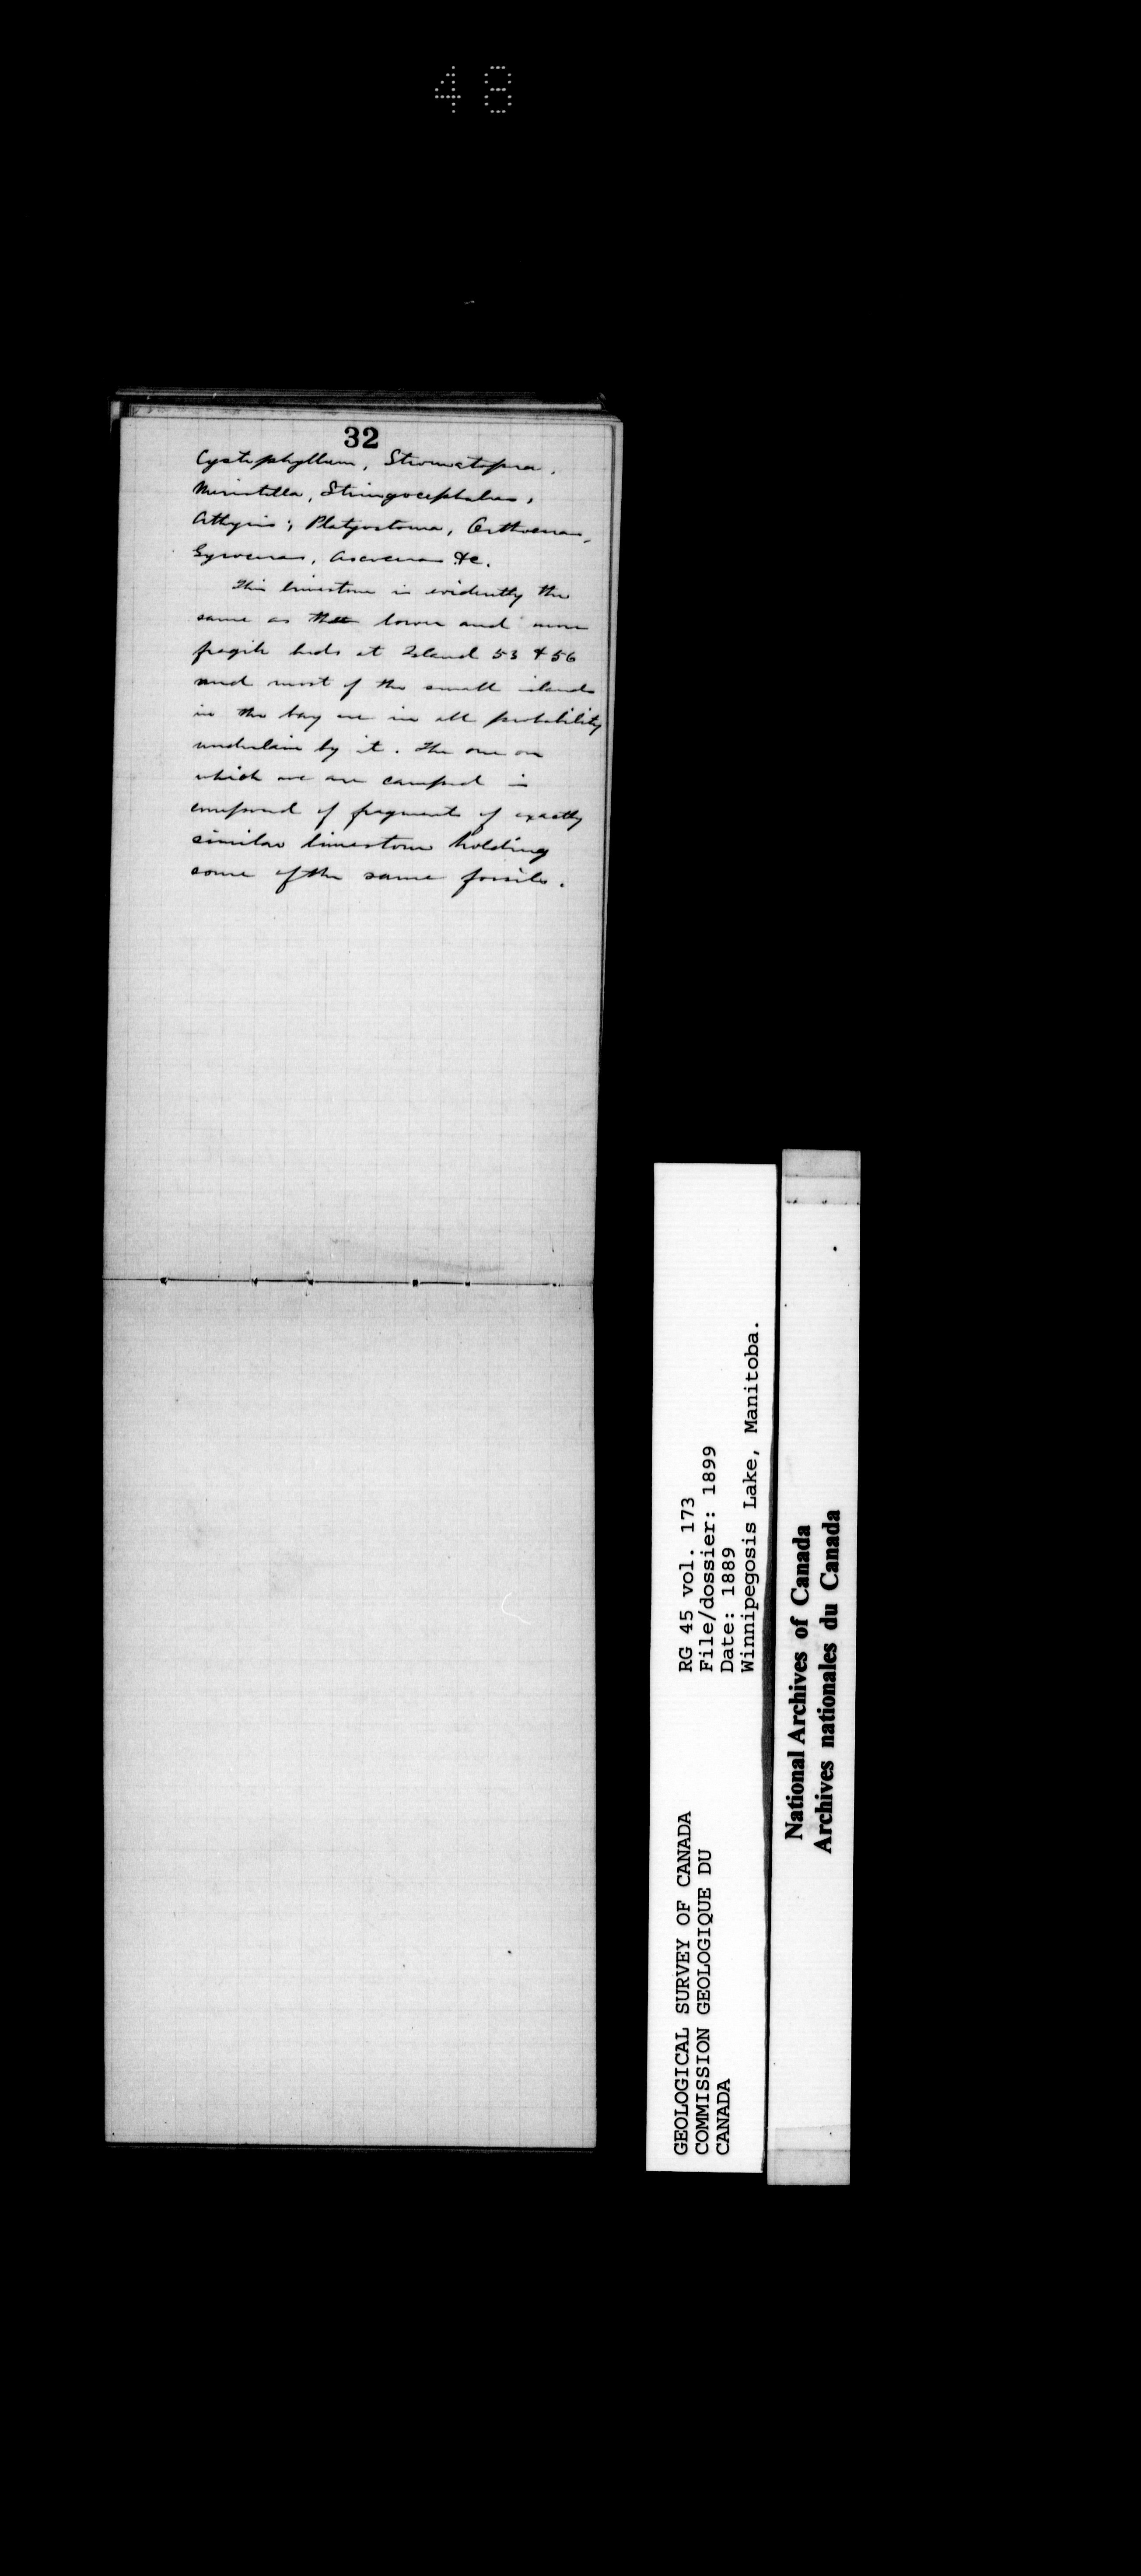 48
32
Cystiphyllum, Stromatopora,
Meristella, Stringocephalus,
Athyris; Platyostoma, Orthoceras,
Gyroceras, Ascoceras &c.
This limestone is evidently the
same as the lower and more
fragile beds at Island 53 & 56
and most of the small islands
in the bay are in all probability
underlain by it. The one on
which we are camped is
composed of fragments of exactly
similar limestone holding
some of the same fossils.
GEOLOGICAL SURVEY OF CANADA
COMMISSION GEOLOGIQUE DU
CANADA
RG 45 vol. 173
File/dossier: 1899
Date: 1889
Winnipegosis Lake, Manitoba.
National Archives of Canada
Archives nationales du Canada